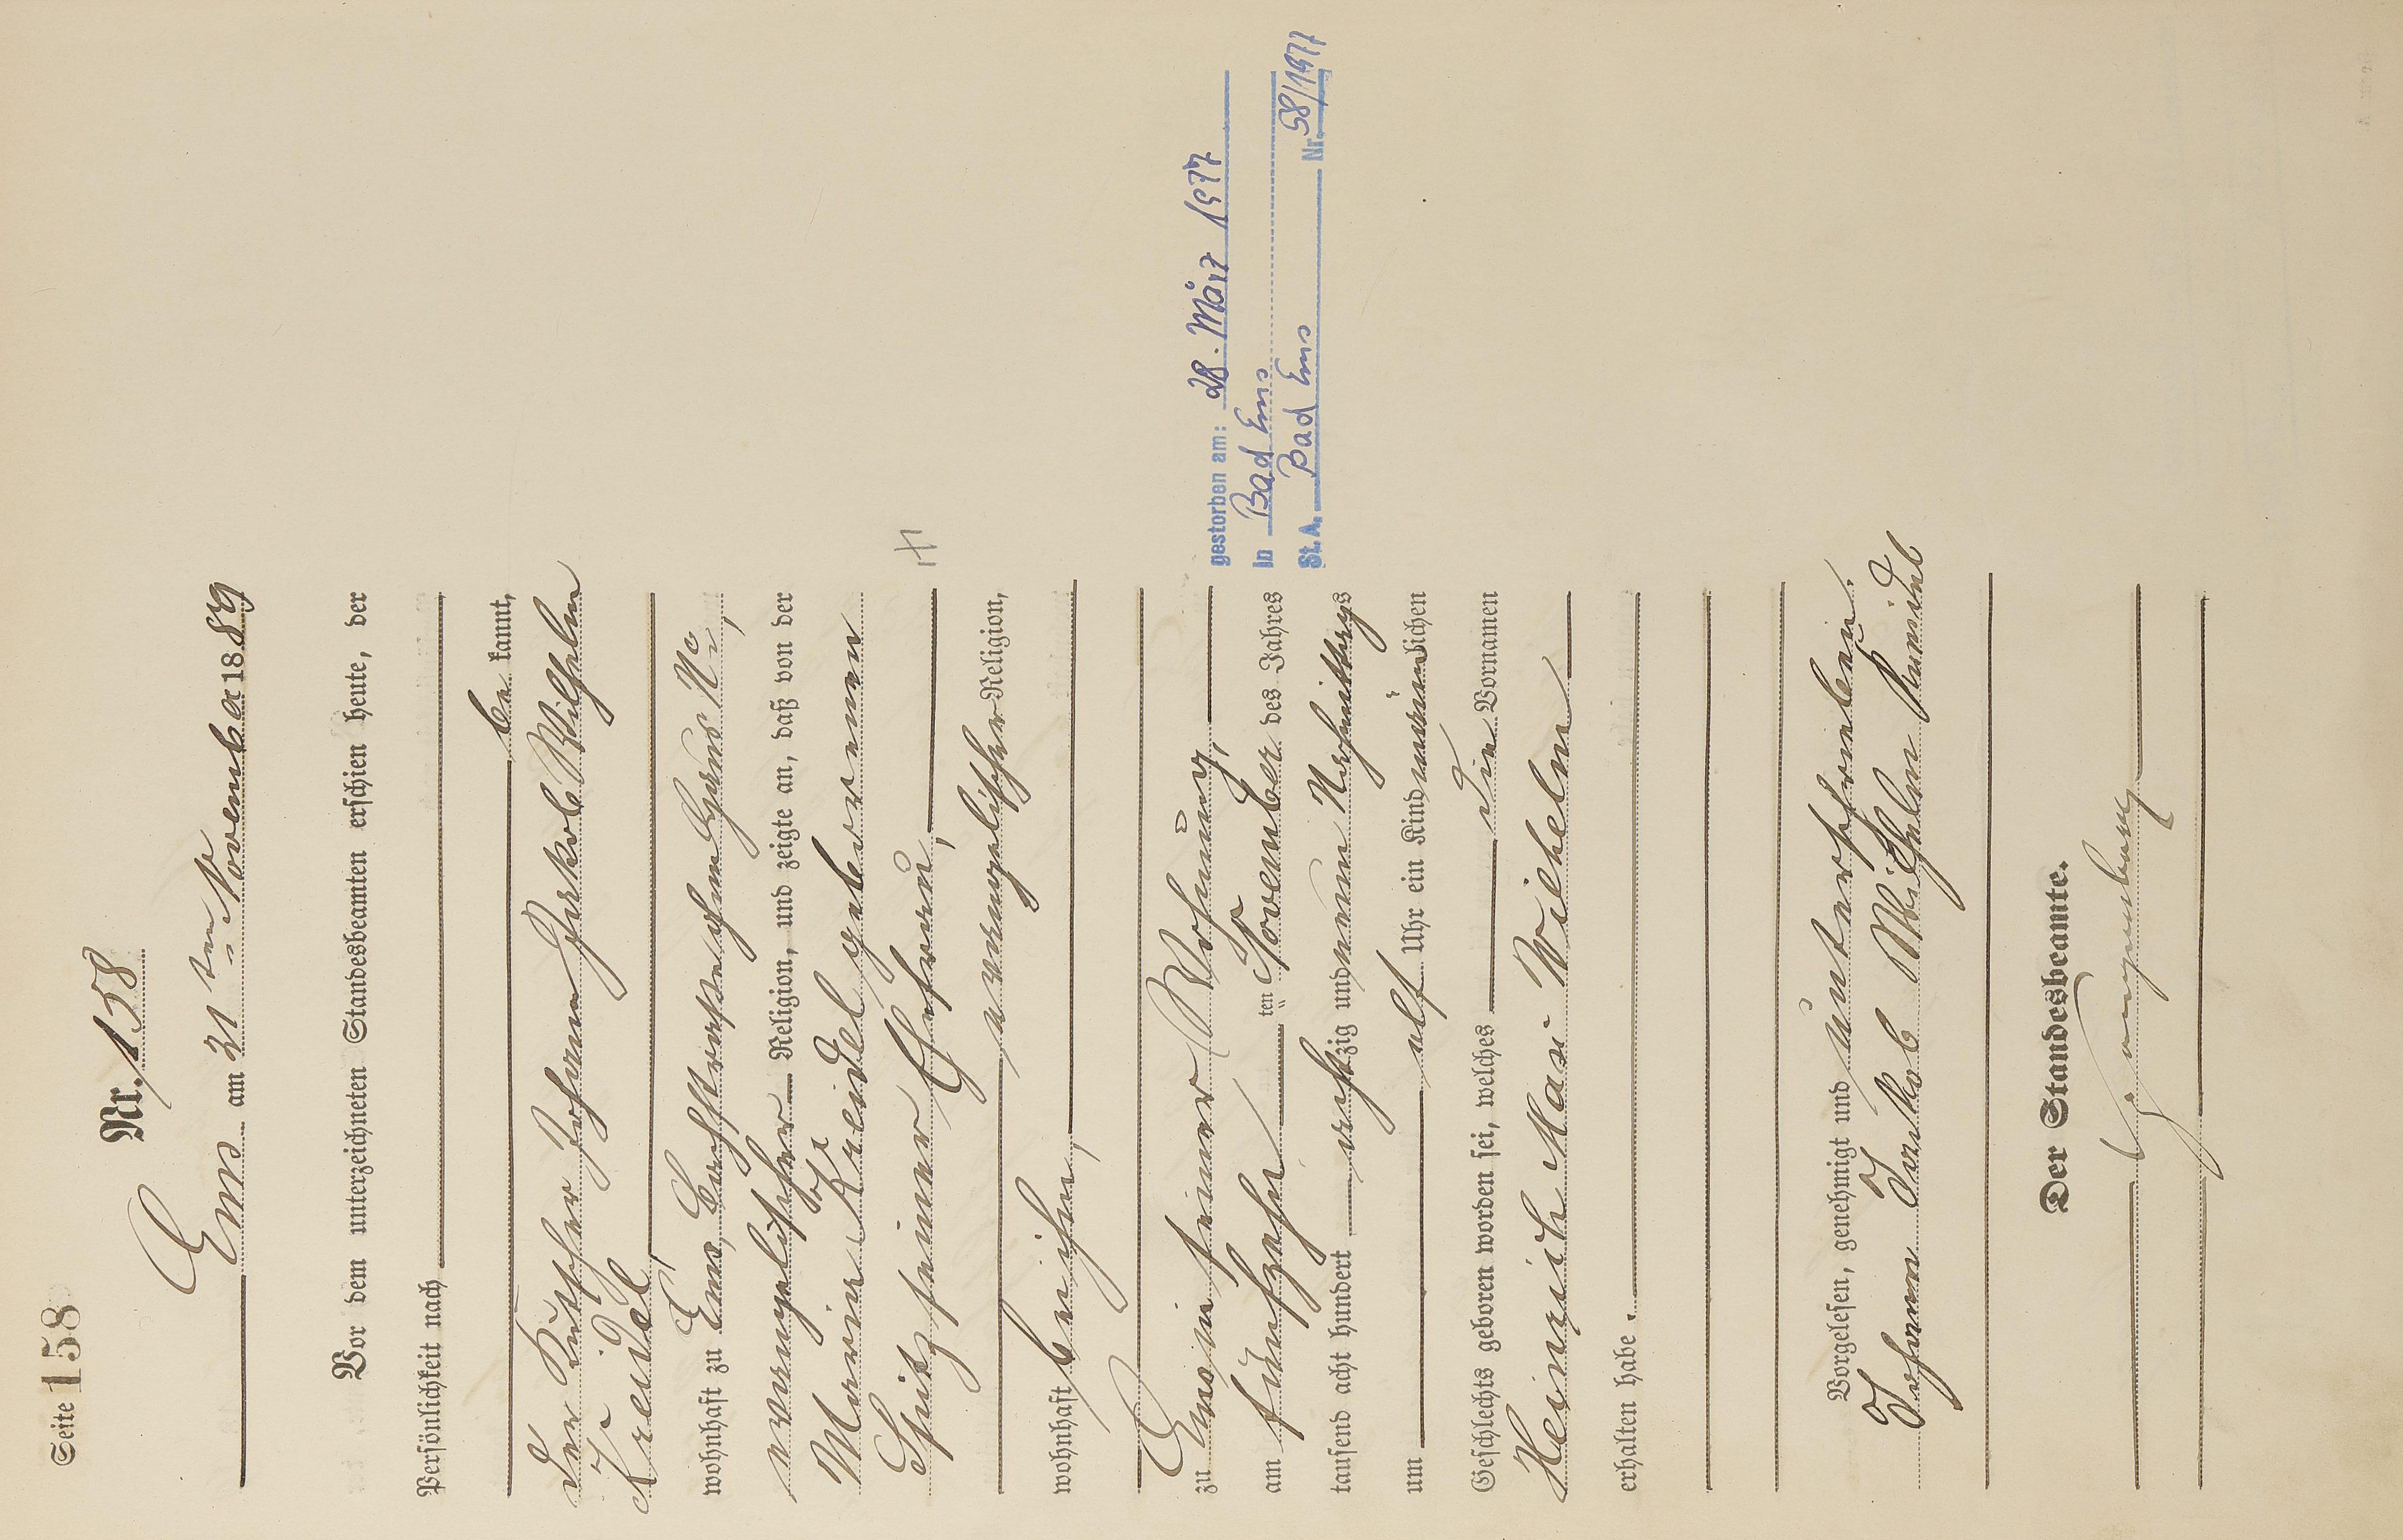 Seite 158
Nr. 158
Ems am 21ten November 1889
Vor dem unterzeichneten Standesbeamten erschien heute, der
Persönlichkeit nach
be kannt,
der Kutscher Johann Jakob Wilhelm
Kreidel,
wohnhaft zu Ems, Bachstraße ohne Haus No,
evangelischer Religion, und zeigte an, daß von der
Marie Kreidel geborenen
Spitz seiner Ehefrau,
evangelischer Religion,
wohnhaft bei ihm,
zu Ems in seiner Wohnung,
am fünfzehn ten November des Jahres
tausend acht hundert achtzig und neun Nachmittags
um elf Uhr ein Kind männlichen
Geschlechts geboren worden sei, welches die Vornamen
Heinrich Max Wilhelm
erhalten habe.
Vorgelesen, genehmigt und unterschrieben.
Johann Jakob Wilhelm
Der Standesbeamte.
gestorben am: 28. März 1977
in Bad Ems
St. A. Bad Ems Nr. 58/1977